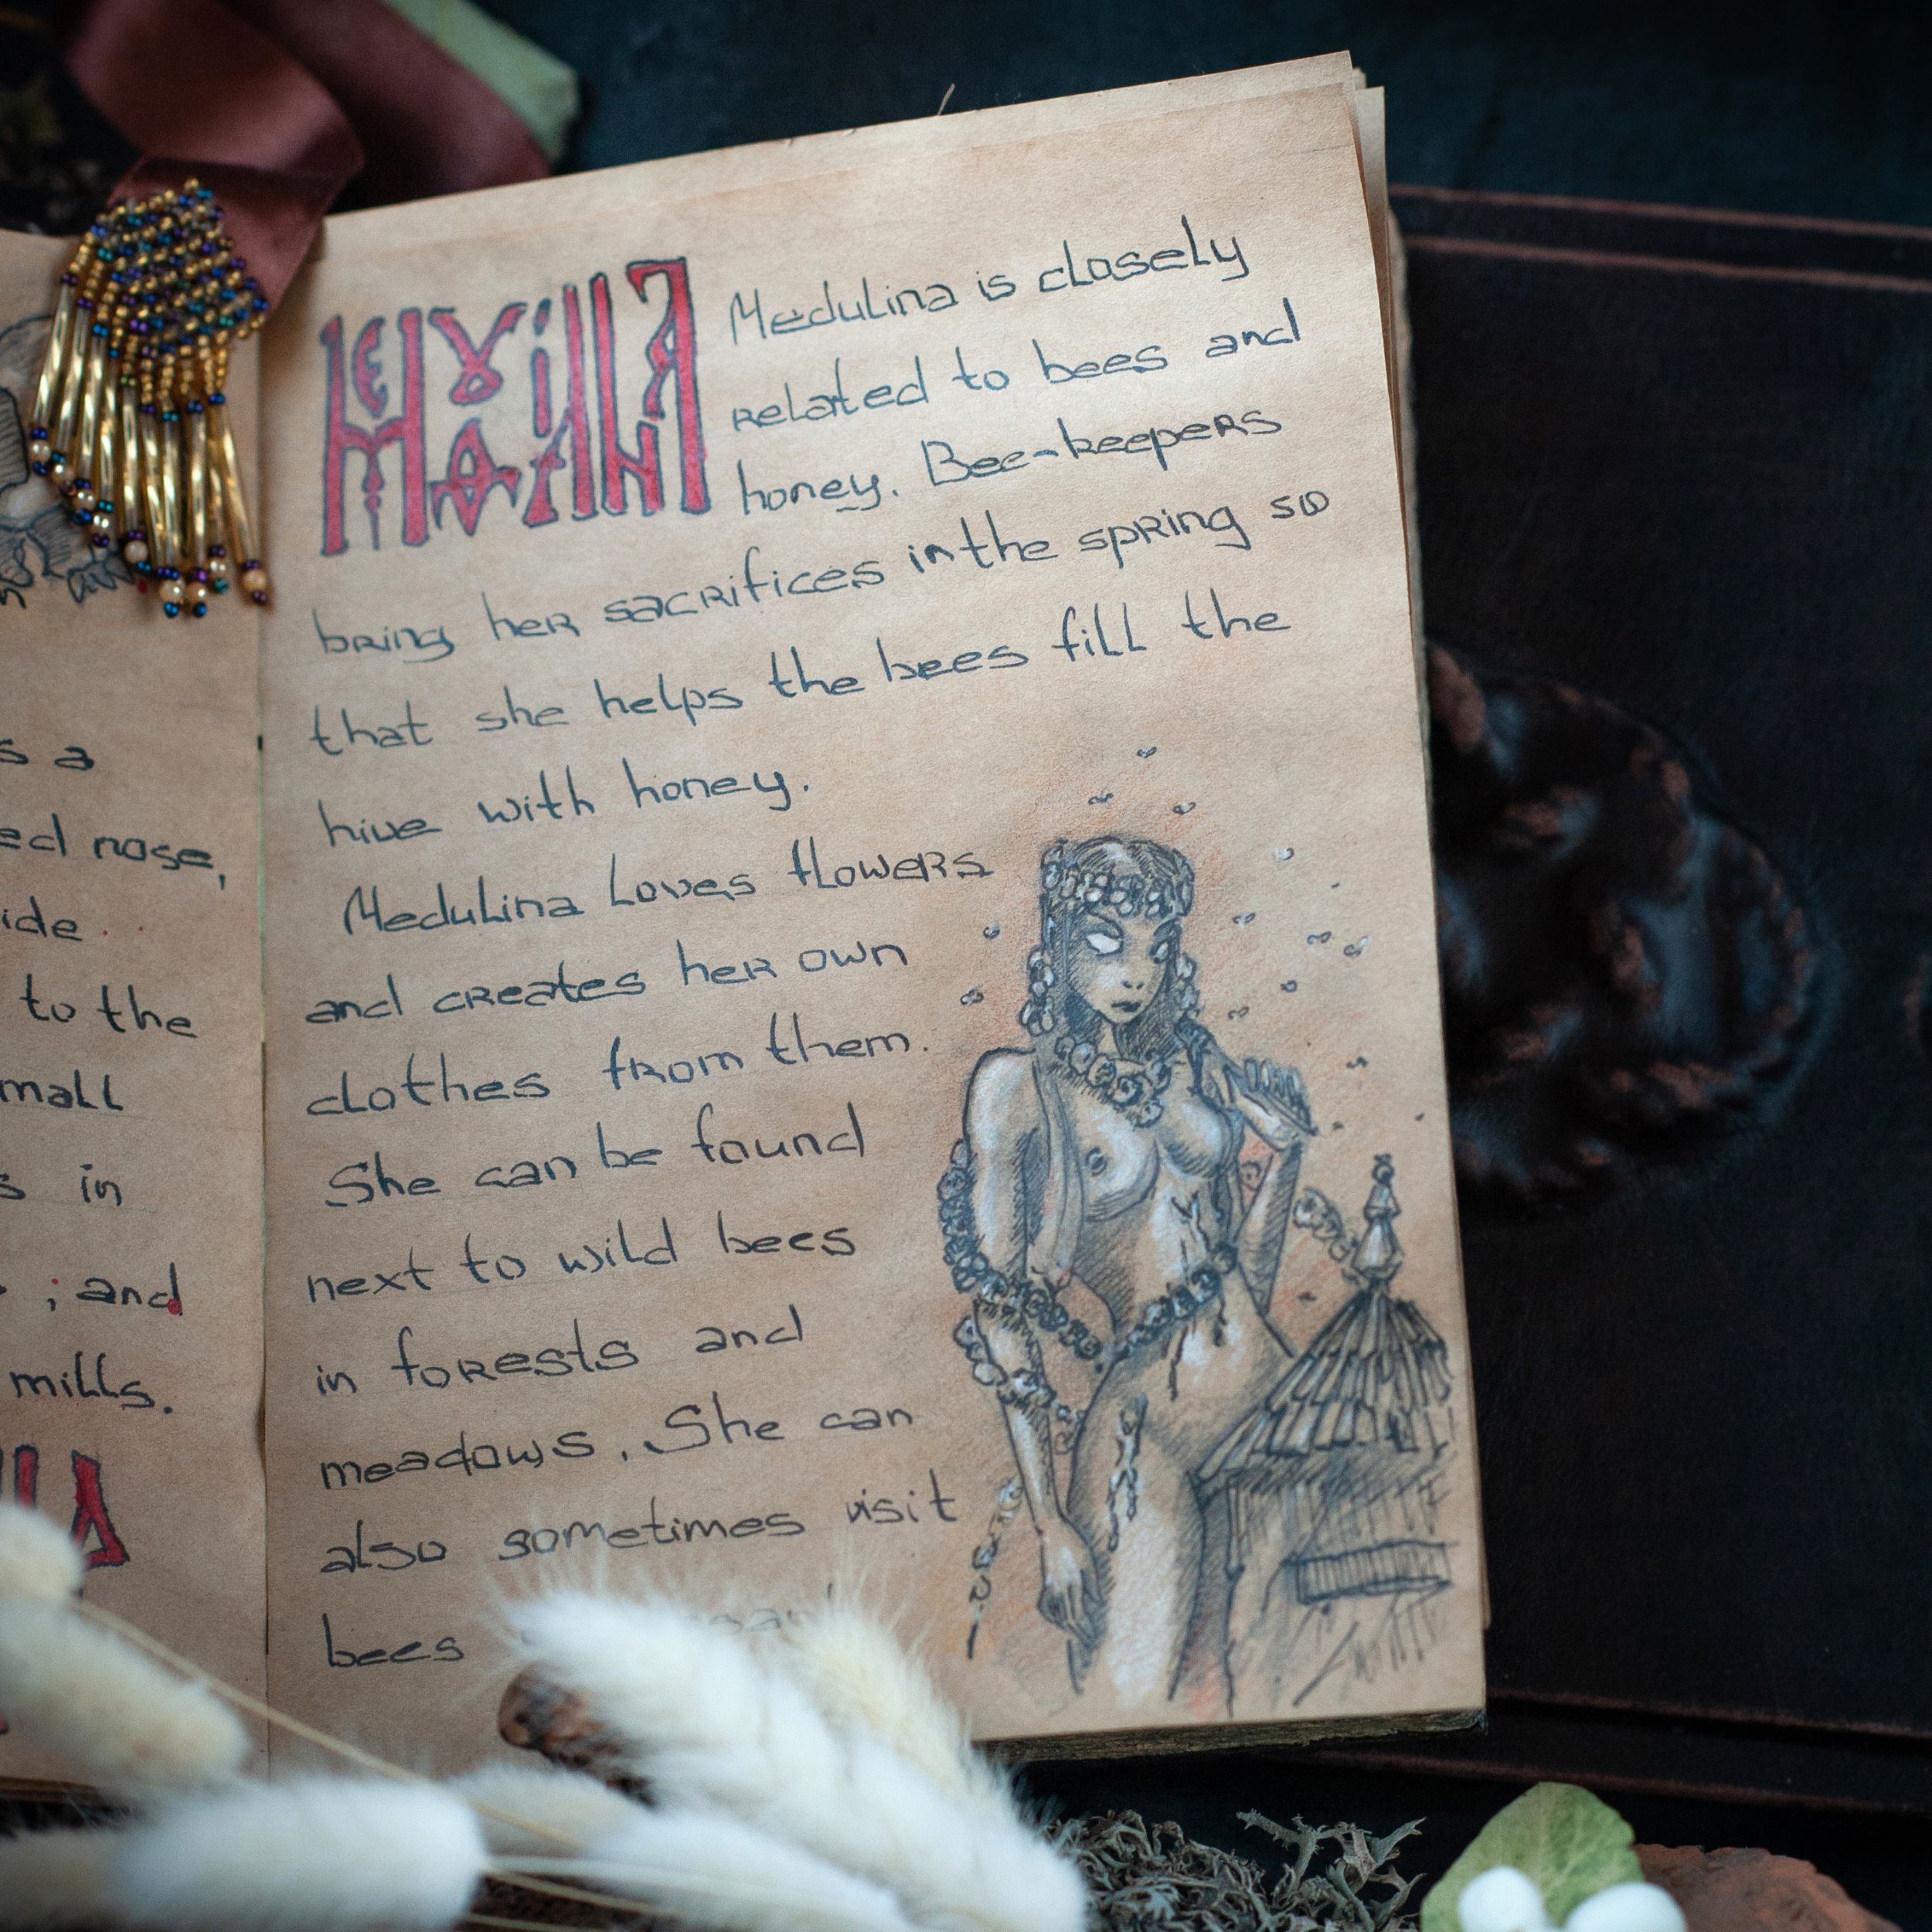 s a
ed nose,
ide
to the
mall
s in
; and
mills.
Medulina is closely
related to bees and
honey. Bee-keepers
bring her sacrifices in the spring so
that she helps the bees fill the
hive with honey.
Medulina Loves flowers
and creates her own
clothes from them.
She can be found
next to wild bees
in forests and
meadows. She can
also sometimes visit
bees